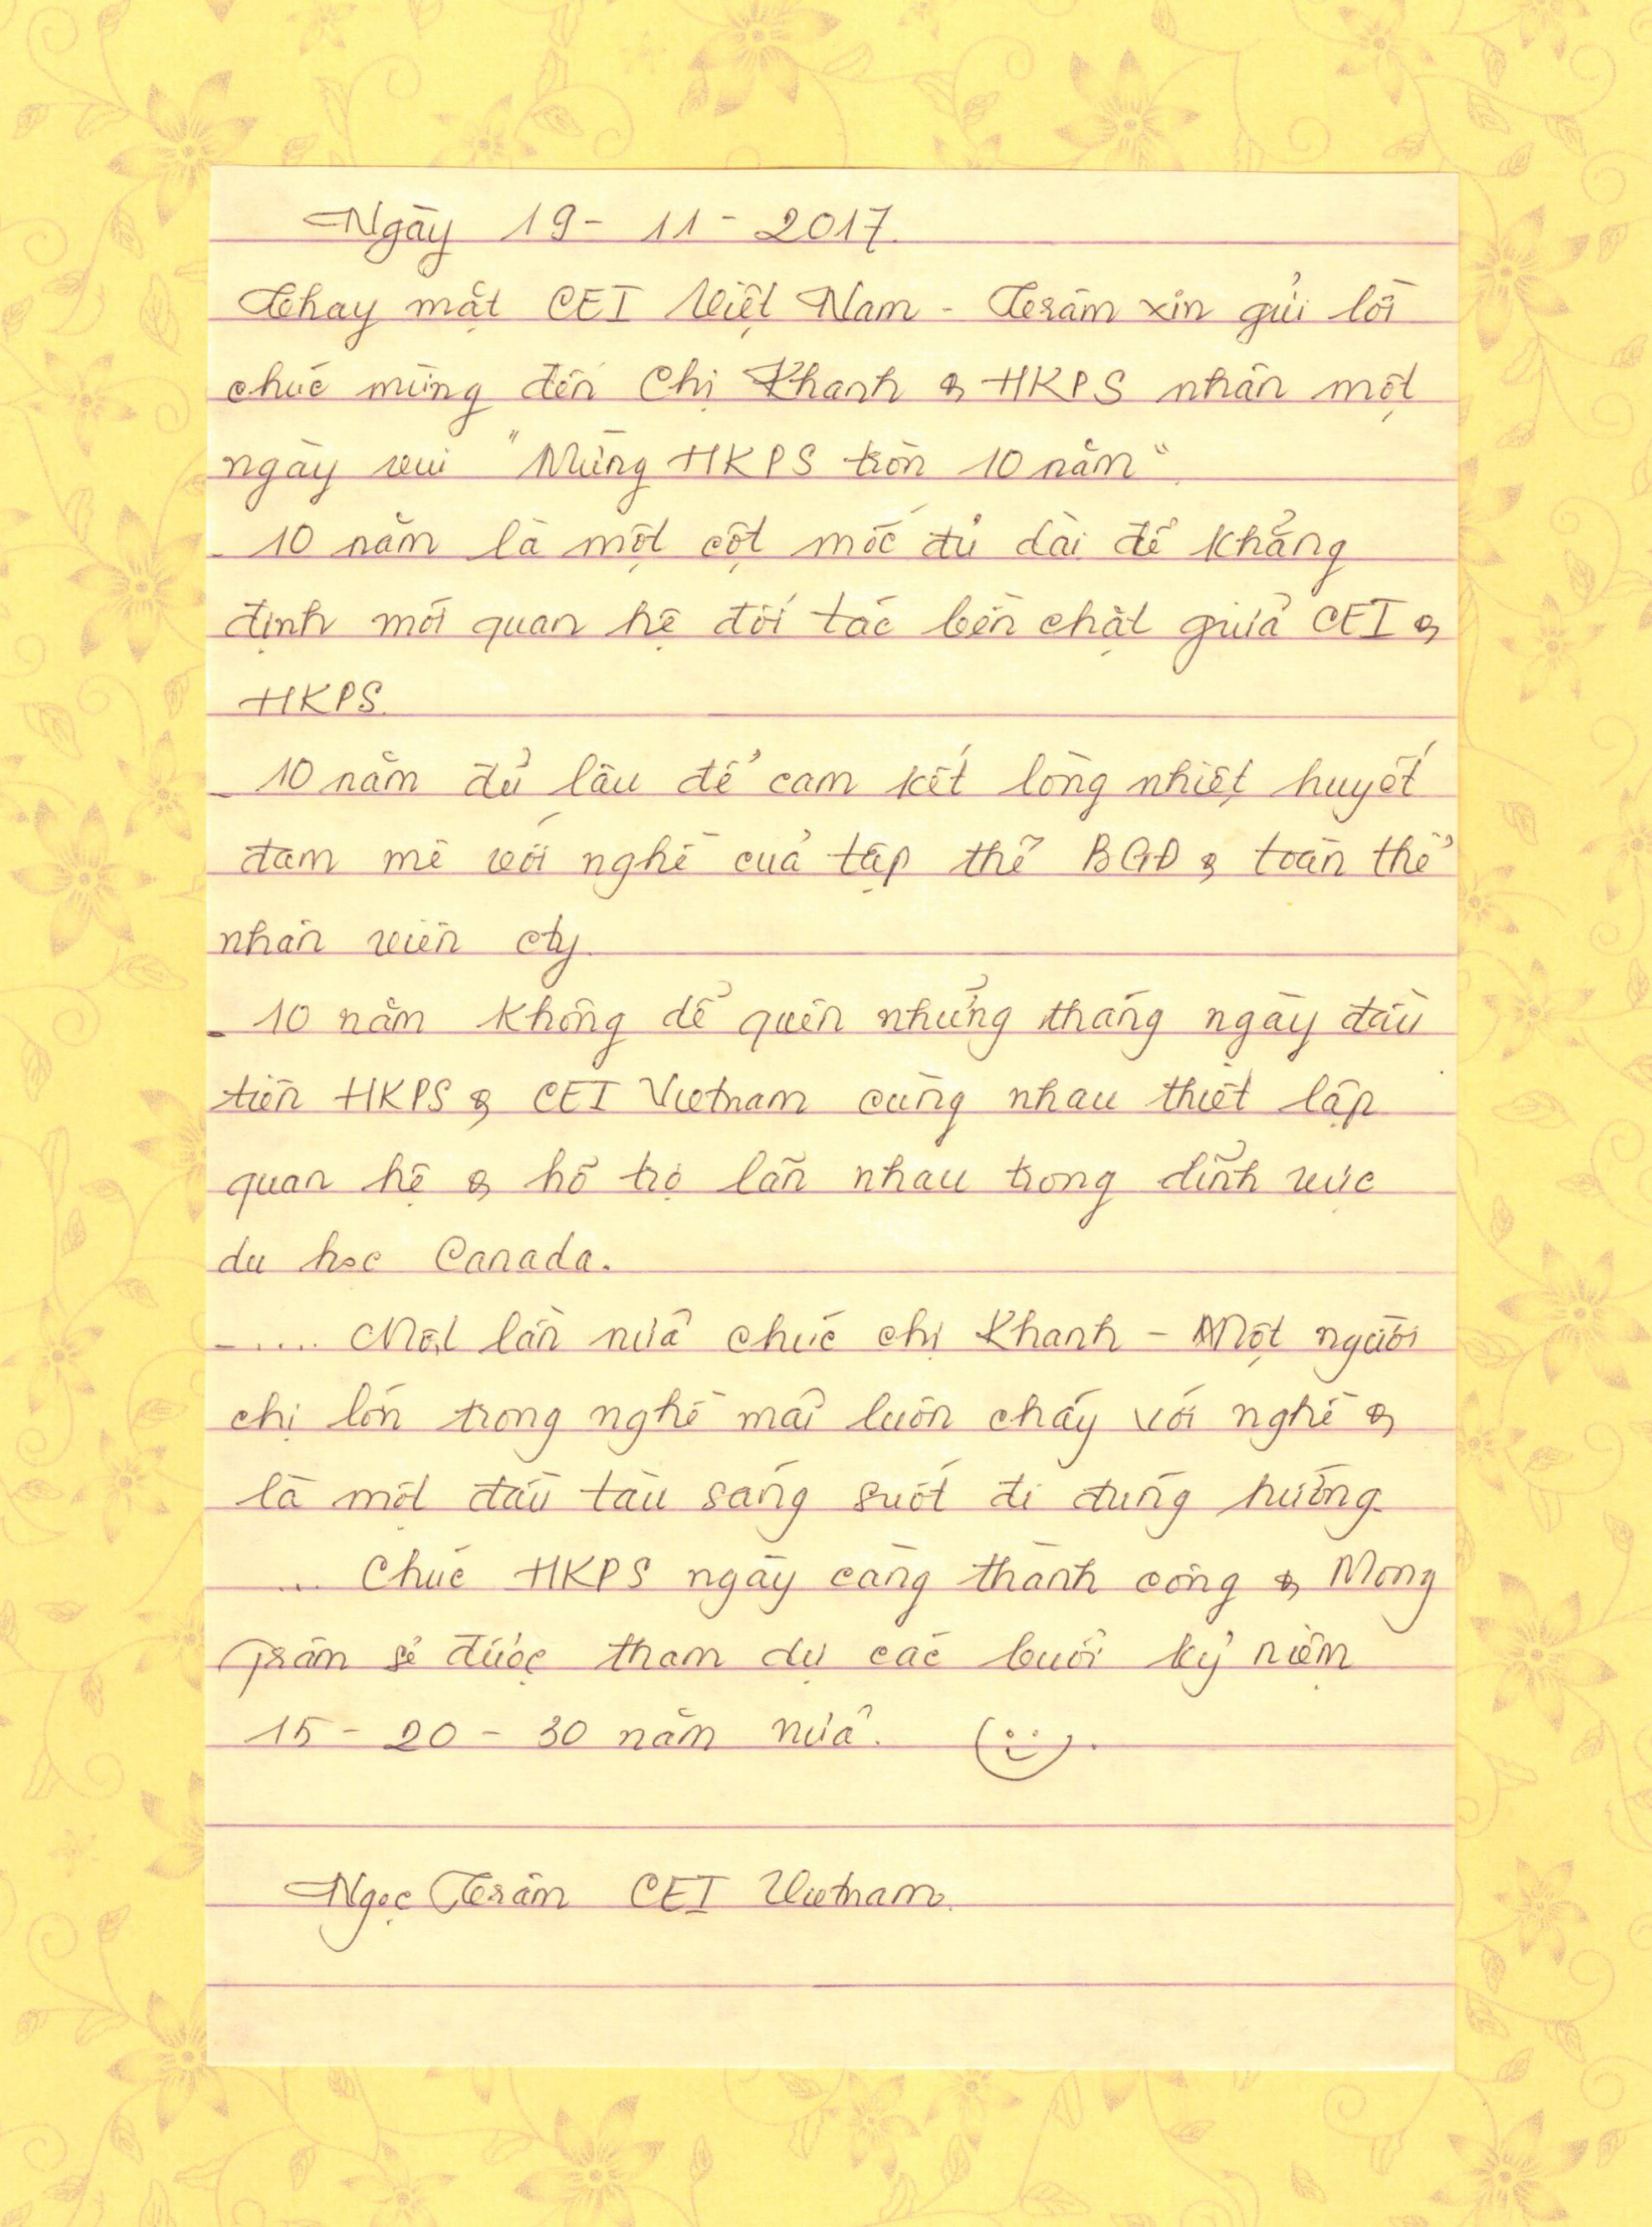 Ngày 19 - 11 - 2017.
Thay mặt CEI Việt Nam - Trâm xin gửi lời
chúc mừng đến Chị Khanh & HKPS nhân một
ngày vui "Mừng HKPS tròn 10 năm".
- 10 năm là một cột mốc đủ dài để khẳng
định mối quan hệ đối tác bền chặt giữa CEI &
HKPS.
- 10 năm đủ lâu để cam kết lòng nhiệt huyết
đam mê với nghề của tập thể BGĐ & toàn thể
nhân viên cty.
- 10 năm không dễ quên những tháng ngày đầu
tiên HKPS & CEI Vietnam cùng nhau thiết lập
quan hệ & hỗ trợ lẫn nhau trong lĩnh vực
du học Canada.
- .... Một lần nữa chúc chị Khanh - Một người
chị lớn trong nghề mãi luôn cháy với nghề &
là một đầu tàu sáng suốt đi đúng hướng.
... Chúc HKPS ngày càng thành công & Mong
Trâm sẽ được tham dự các buổi kỷ niệm
15 - 20 - 30 năm nữa. (¨‿).
Ngọc Trâm CEI Vietnam.